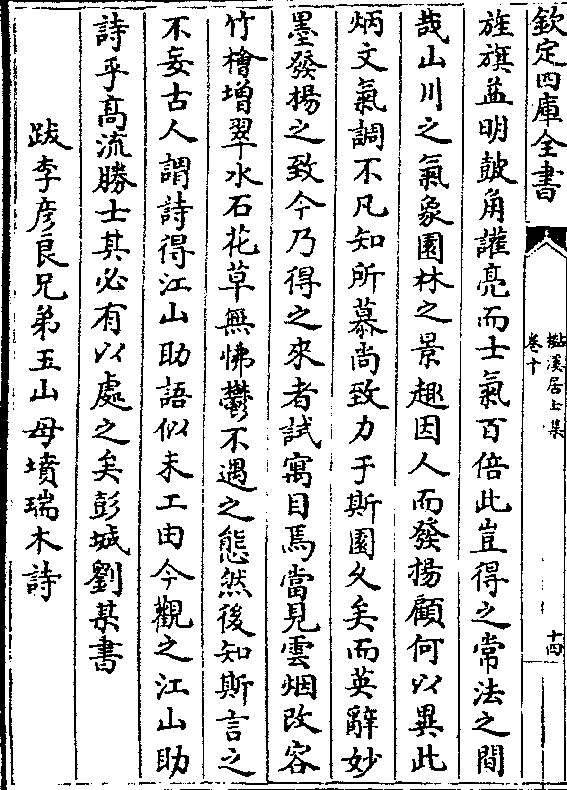 欽定四庫全書
檆溪居士集
卷十
十四
旌旗益明鼓角讙亮而士氣百倍此豈得之常法之間
哉山川之氣象園林之景趣因人而發揚顧何以異此
炳文氣調不凡知所慕尚致力于斯園久矣而英辭妙
墨發揚之致今乃得之來者試寓目焉當見雲烟改容
竹檜增翠水石花草無怫鬱不遇之態然後知斯言之
不妄古人謂詩得江山助語似未工由今觀之江山助
詩乎高流勝士其必有以處之矣彭城劉某書
跋李彦良兄弟五山母墳瑞木詩